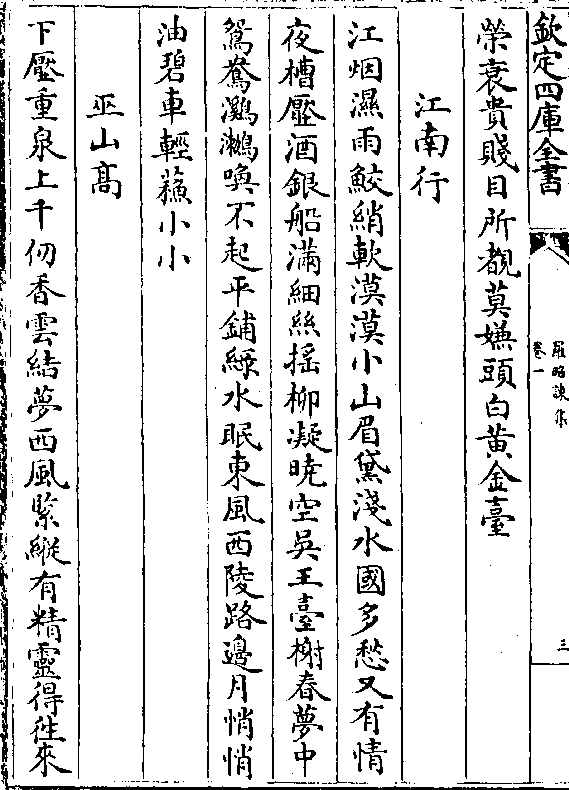 欽定四庫全書
羅昭諫集
卷一
三
榮衰貴賤目所覩莫嫌頭白黃金臺
江南行
江烟濕雨鮫綃軟漠漠小山眉黛淺水國多愁又有情
夜槽壓酒銀船滿細絲揺柳凝曉空吳王臺榭春夢中
鴛鴦鸂鶒喚不起平鋪綠水眠東風西陵路邊月悄悄
油碧車輕蘓小小
巫山髙
下壓重泉上千仞香雲結夢西風緊縱有精靈得徃來